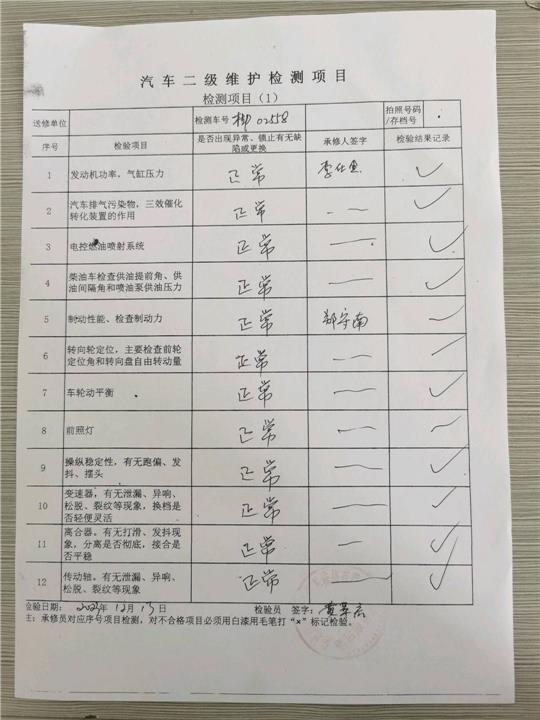 汽车二级维护检测项目
检测项目（1）
送修单位 检测车号 02558 拍照号码/存档号
序号 检验项目 是否出现异常、锁止有无缺陷或更换 承修人签字 检验结果记录
1 发动机功率，气缸压力 正常 ✓
2 汽车排气污染物，三效催化转化装置的作用 正常 — ✓
3 电控燃油喷射系统 正常 — ✓
4 柴油车检查供油提前角、供油间隔角和喷油泵供油压力 正常 — ✓
5 制动性能、检查制动力 正常 郑守南 ✓
6 转向轮定位，主要检查前轮定位角和转向盘自由转动量 正常 — ✓
7 车轮动平衡 正常 — ✓
8 前照灯 正常 — ✓
9 操纵稳定性，有无跑偏、发抖、摆头 正常 — ✓
10 变速器，有无泄漏、异响、松脱、裂纹等现象，换档是否轻便灵活 正常 — ✓
11 离合器。有无打滑、发抖现象，分离是否彻底，接合是否平稳 正常 — ✓
12 传动轴。有无泄漏、异响、松脱、裂纹等现象 正常 — ✓
检验日期： 年12月13日 检验员 签字：
主：承修员对应序号项目检测，对不合格项目必须用白漆用毛笔打“×”标记检验。